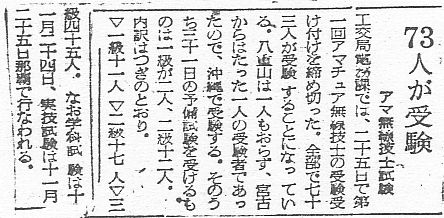 73人が受験
アマ無線技士試験
工交局電務課では、二十五日で第
一回アマチュア無線技士の受験受
け付けを締め切った。全部で七十
三人が受験することになってい
る。八重山は一人もおらず、宮古
からはたった一人の受験者であっ
たので、沖縄で受験する。そのう
ち三十一日の予備試験を受けるも
のは一級が二人、二級十二人。
内訳はつぎのとおり。
▽一級十一人▽二級十七人▽三
級四十五人。なお学科試験は十
一月二十四日、実技試験は十一月
二十五日那覇で行なわれる。